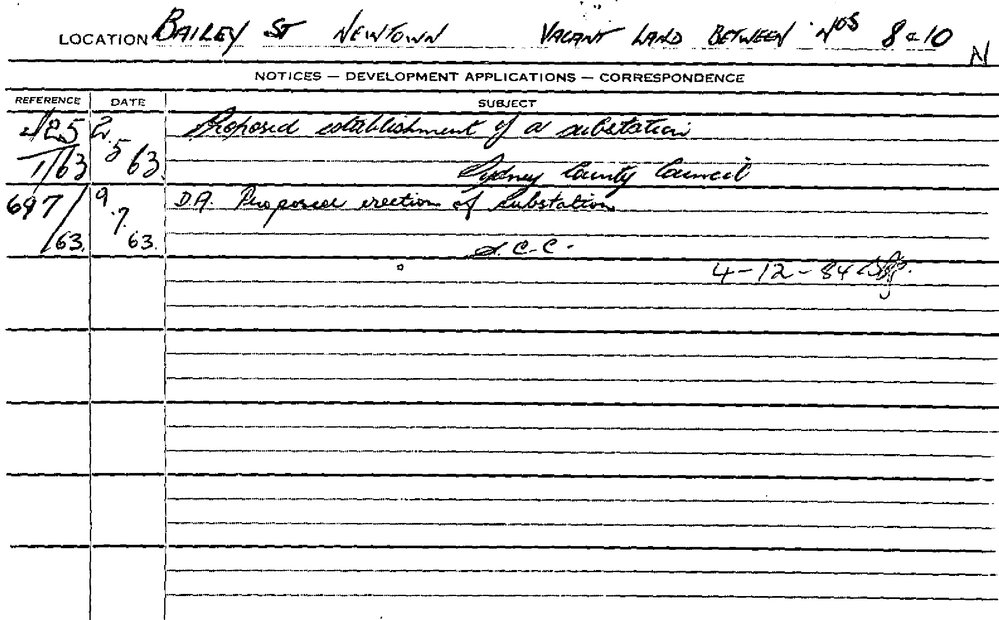 LOCATION BAILEY ST NEWTOWN VACANT LAND BETWEEN NOS 8 & 10
N
NOTICES — DEVELOPMENT APPLICATIONS — CORRESPONDENCE
REFERENCE DATE SUBJECT
2. Proposed establishment of a substation
1/63 5 63. Sydney County Council
697/ 9 D.A. Proposed erection of substation
/63. .7. 63. S.C.C.
4-12-84